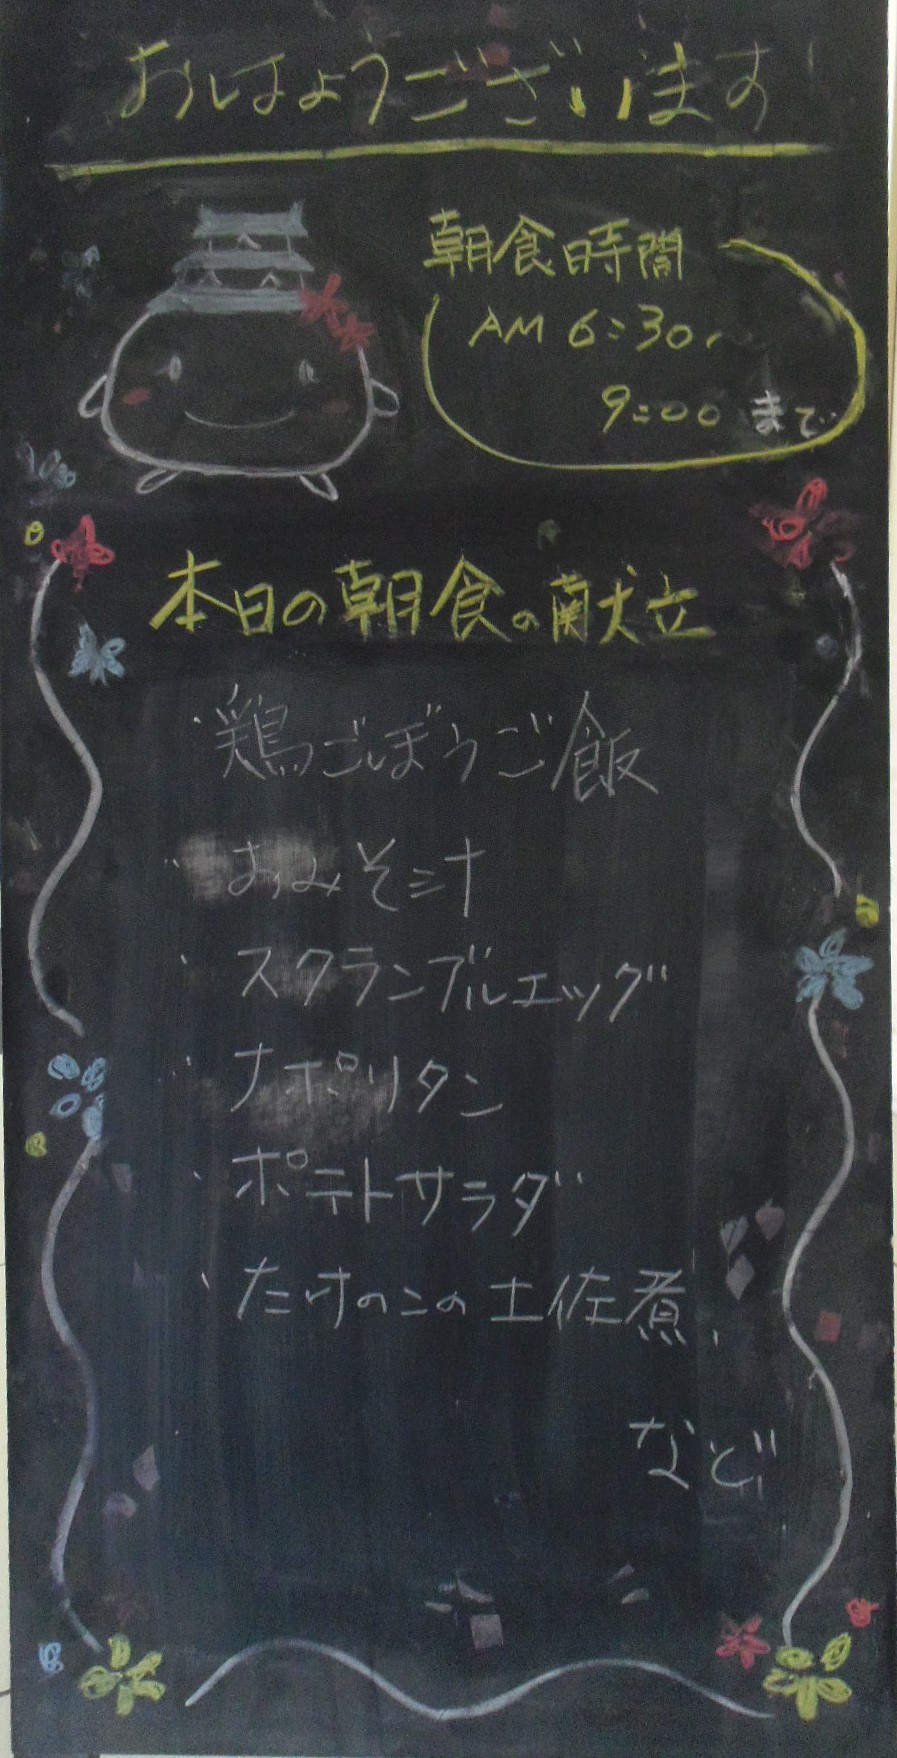 おはようございます
朝食時間
AM 6:30〜
9:00 まで
本日の朝食の献立
・鶏ごぼうご飯
・おみそ汁
・スクランブルエッグ
・ナポリタン
・ポテトサラダ
・たけのこの土佐煮、
など